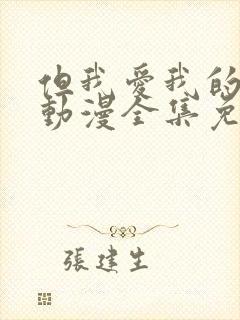 但我愛我的
動漫全集免
張建生